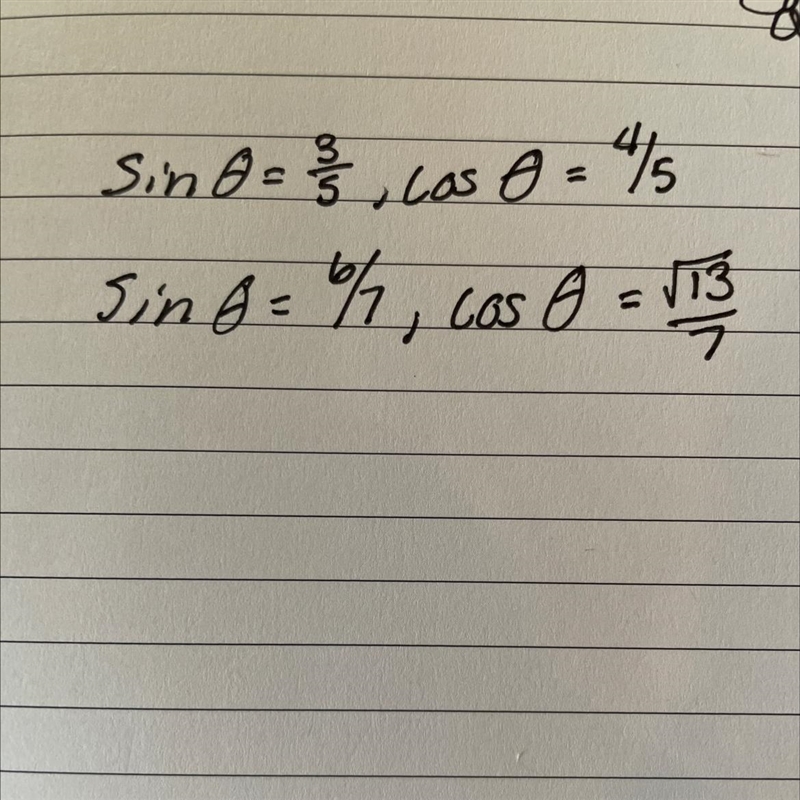 sin θ = 3/5, cos θ = 4/5
sin θ = 6/7, cos θ = √13/7